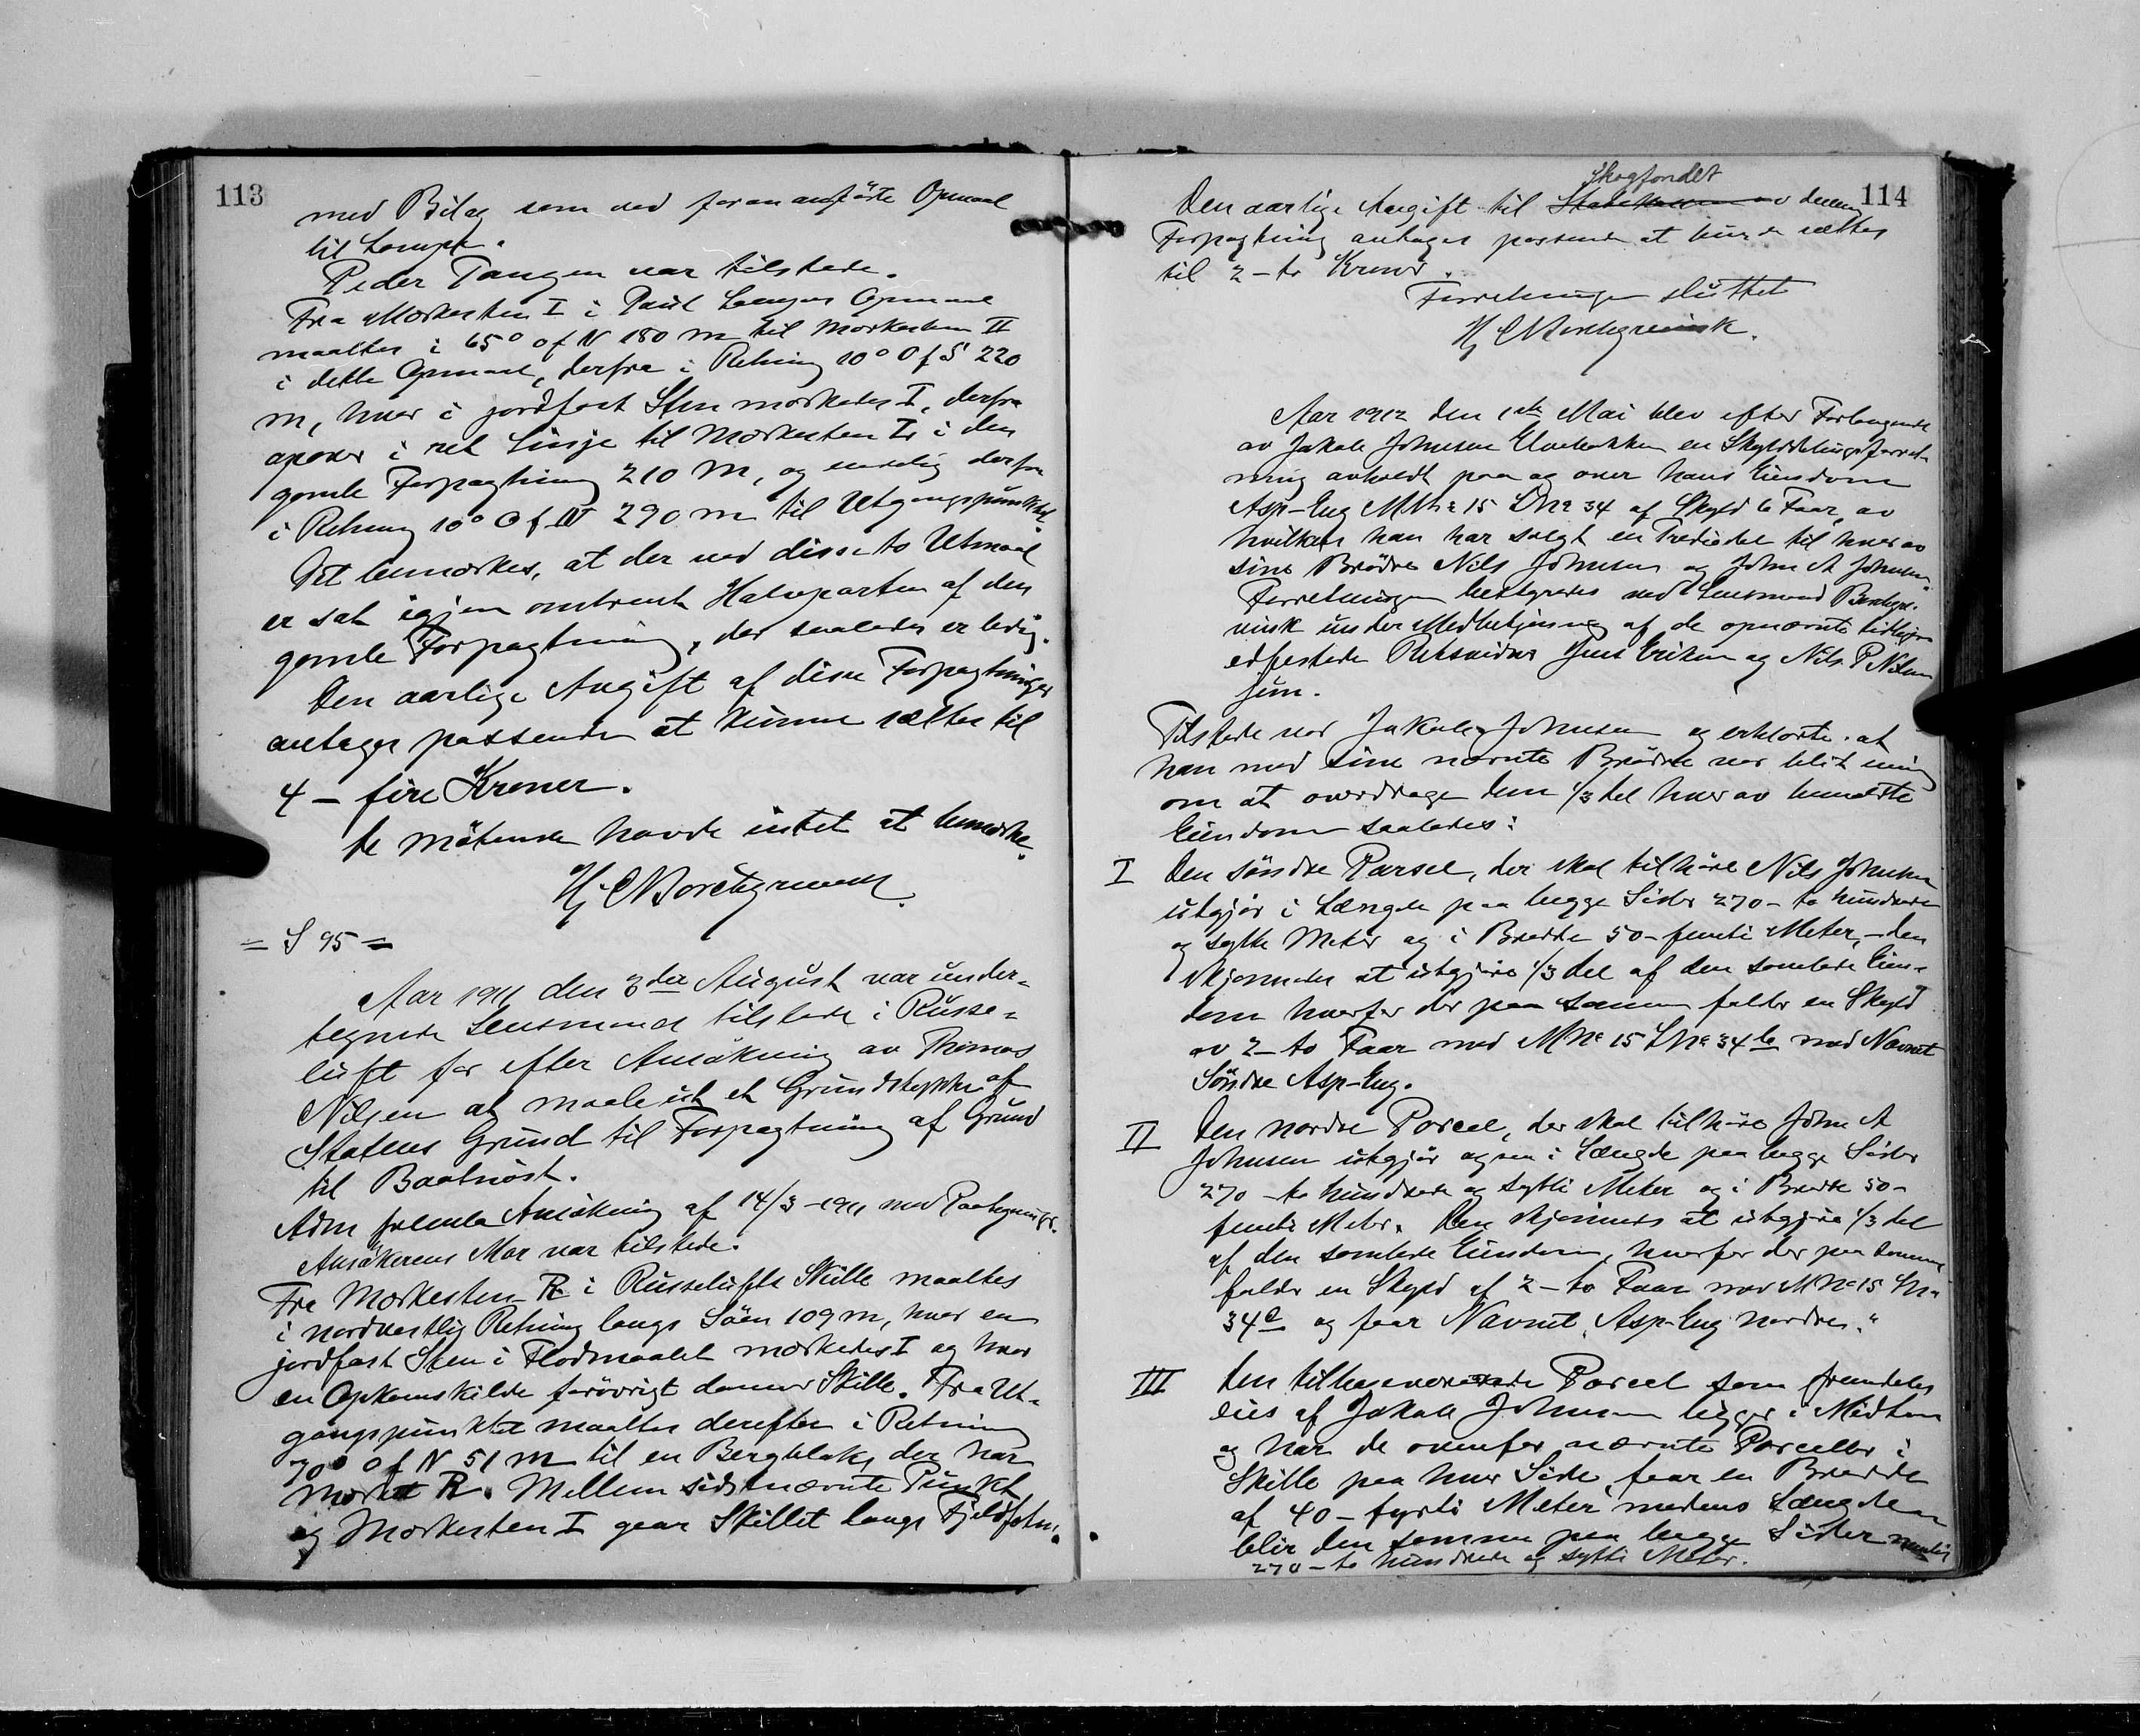 113
med Bilag som ved foran anførte Opmaal
til Lompe.
Peder Tangen var tilstede.
Fra Merkesten I i Paul Langes Opmaal
maaltes i 65° O f N 180 m til Merkesten II
i dette Opmaal, derfra i Retning 10° O f S 220
m, hvor i jordfast Sten merkedes I, derfra
i ret Linje til Merkesten I i den
gamle Forpagtning 210 m, og endelig derfra
i Retning 10° O f N 290 m til Utgangspunktet.
Det bemerkes, at der ved disse to Utmaal
er sat igjen omtrent Halvparten af den
gamle Forpagtning, der saaledes er ledig.
Den aarlige Avgift af disse Forpagtninger
antages passende at kunne sættes til
4 - fire Kroner.
De møtende havde intet at bemerke.
Hj C Borchgrevink
= S 95 =
Aar 1911 den 3die August var under-
tegnede Lensmand tilstede i Russe-
luft for efter Ansøkning av Thomas
Nilsen at maale ut et Grundstykke af
Statens Grund til Forpagtning af Grund
til Baatnøst.
Adm fremla Ansøkning af 14/3 - 1911 med Paategninger.
Ansøkerens Mor var tilstede.
Fra Merkesten R i Russelufts Skille maaltes
i nordvestlig Retning langs Søen 109 m, hvor en
jordfast Sten i Flodmaalet merkedes I og hvor
en Opkomskilde forøvrigt danner Skille. Fra Ut-
gangspunktet maaltes derefter i Retning
70° O f N 51 m til en Bergblok, der har
Merket R. Mellem sidstnævnte Punkt
og Merkesten I gaar Skillet langs Fjeldfoten.
114
Skogfondet
Den aarlige Avgift til Statskassen av denne
Forpagtning antages passende at kunde sættes
til 2 - to Kroner.
Forretningen sluttet
Hj C Borchgrevink.
Aar 1912 den 1ste Mai blev efter Forlangende
av Jakob Johnsen Elvebakken en Skylddelingsforret-
ning avholdt paa og over hans Eiendom
Asp-Eng MNo 15 LNo 34 af Skyld 6 Faar, av
hvilken han har solgt en Trediedel til hver av
sine Brødre Nils Johnsen og John A Johnsen.
Forretningen bestyredes ved Lensmand Borchgre-
vink under Medbetjening af de opnævnte tidligere
edfestede Retsvidner Jens Eriksen og Nils P Nilsen
jun.
Tilstede var Jakob Johnsen og erklærte at
han med sine nævnte Brødre var blit enig
om at overdrage dem 1/3 del hver av benævnte
Eiendom saaledes:
I Den søndre Parsel, der skal tilhøre Nils Johnsen
utgjør i Længde paa begge Sider 270 - to hundrede
og sytti Meter og i Bredde 50 - femti Meter, - den
skjønnedes at utgjøre 1/3 del af den samlede Eien-
dom hvorfor der paa samme falder en Skyld
av 2 - to Faar med MNo 15 LNo 34 b med Navnet
Søndre Asp-Eng.
II Den nordre Parcel, der skal tilhøre John A
Johnsen utgjør ogsaa i Længde paa begge Sider
270 - to hundrede og sytti Meter og i Bredde 50 -
femti Meter. Den skjønnes at utgjøre 1/3 del
af den samlede Eiendom, hvorfor der paa samme
falder en Skyld af 2 - to Faar med MNo 15 LNo
34 c og faar Navnet "Asp-Eng nordre."
III Den tilbageværende Parcel som fremdeles
eies af Jakob Johnsen ligger i Midten
og har de ovenfor nævnte Parceller i
Skille paa hver Side, faar en Bredde
af 40 - fyrti Meter medens Længden
blir den samme paa begge Sider nemlig
270 - to hundrede og sytti Meter.